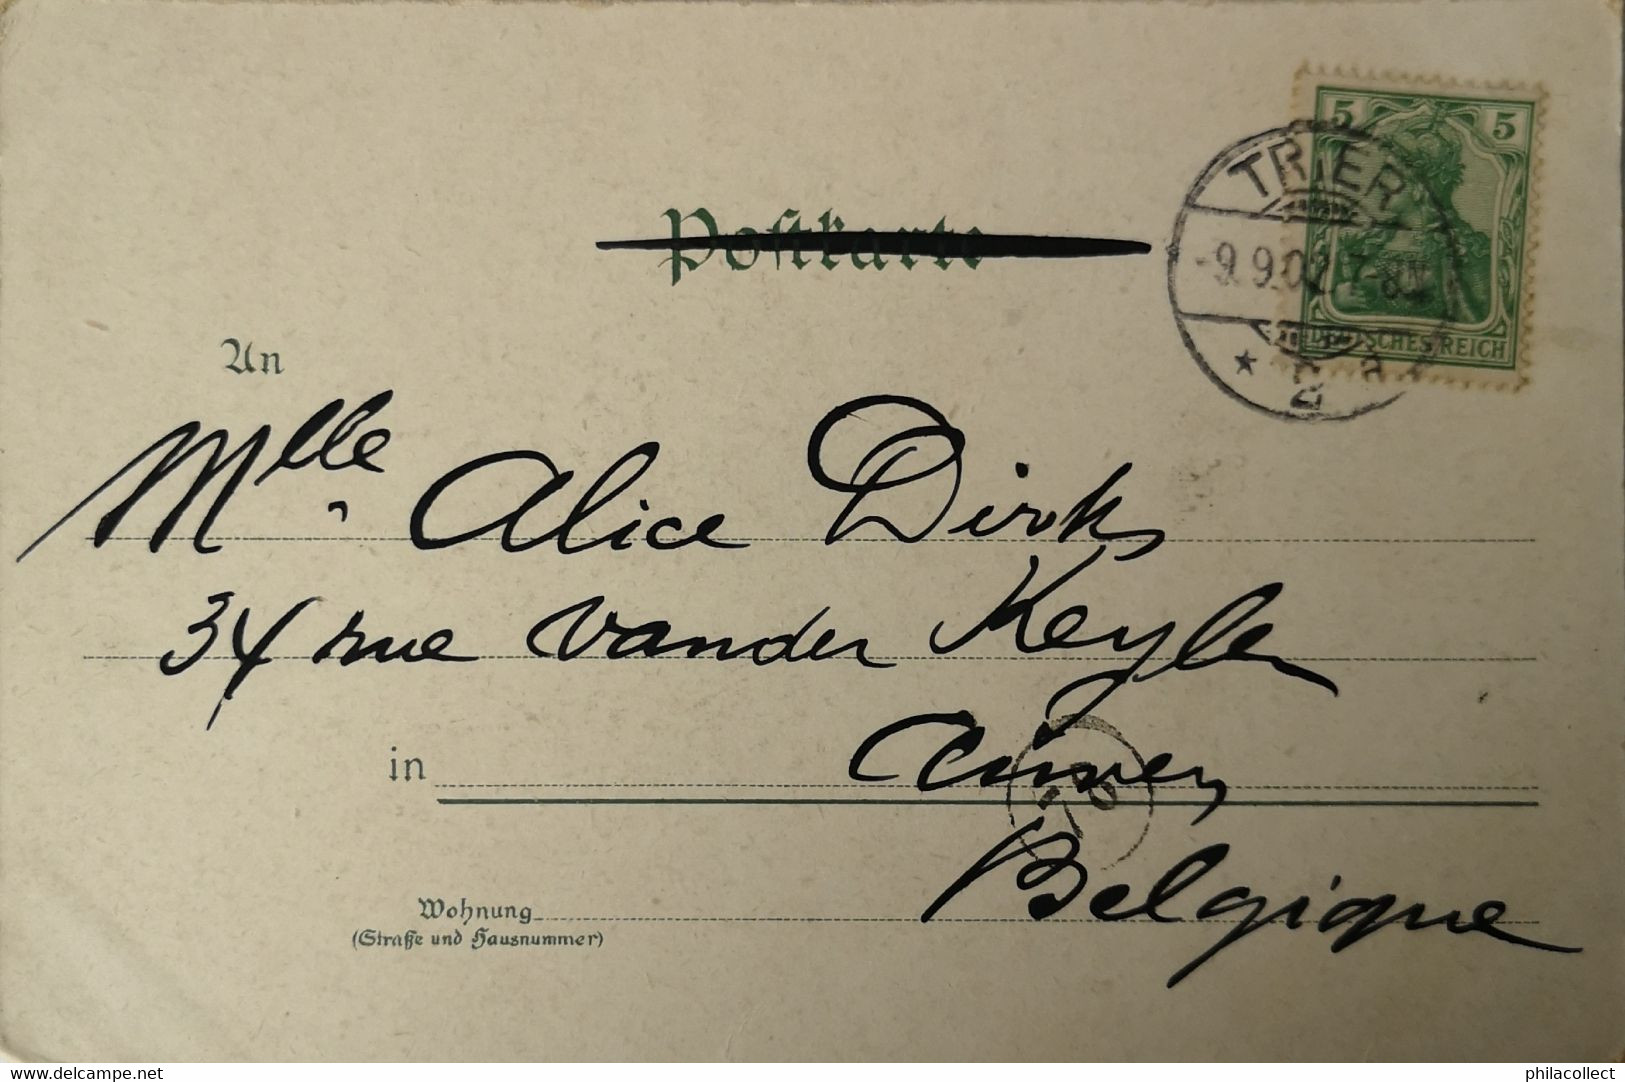 5 5
TRIER
-9.9.02. 7-8N.
* 2 a
DEUTSCHES REICH
Postkarte
An
Mlle Alice Dirks
34 rue Vander Keylen
in Anvers
Belgique
Wohnung
(Straße und Hausnummer)
www.delcampe.net
philacollect